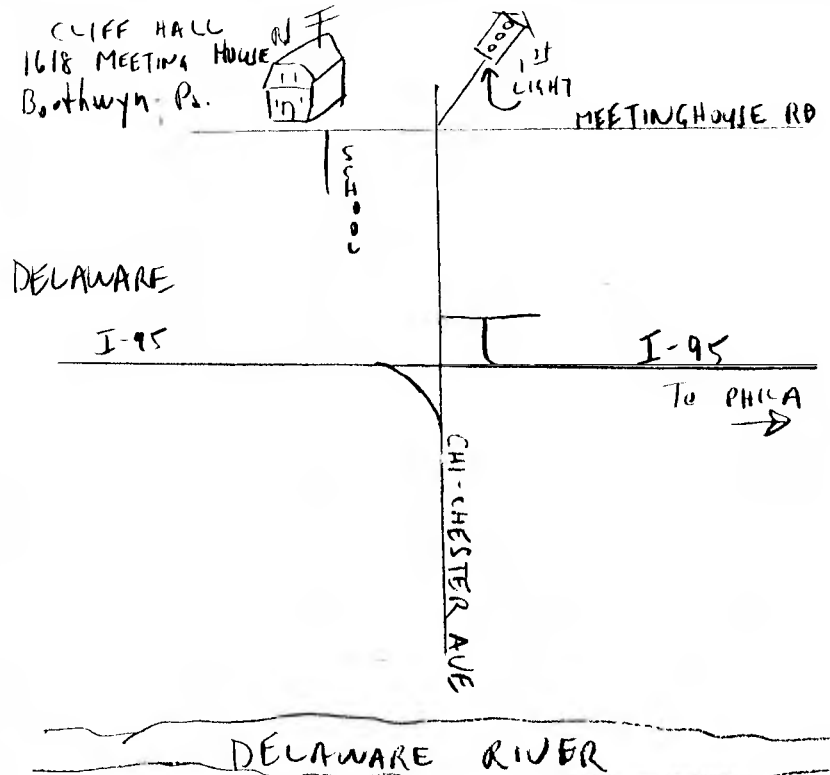 CLIFF HALL
1618 MEETING HOUSE Rd
Boothwyn Pa.
1st
LIGHT
MEETINGHOUSE RD
SCHOOL
DELAWARE
I-95
I-95
To PHILA
CHI-CHESTER AVE
DELAWARE RIVER